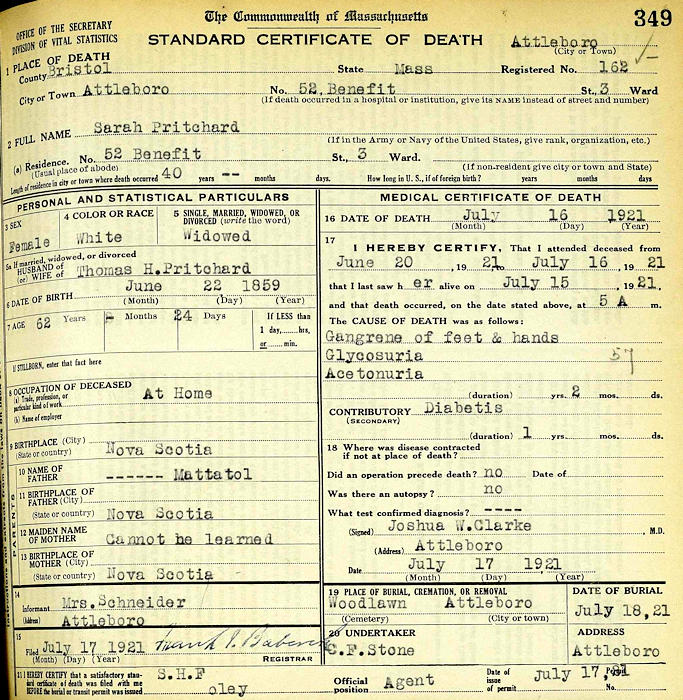 The Commonwealth of Massachusetts
349
OFFICE OF THE SECRETARY
DIVISION OF VITAL STATISTICS
STANDARD CERTIFICATE OF DEATH
Attleboro
(City or Town)
1 PLACE OF DEATH
County Bristol State Mass Registered No. 162
City or Town Attleboro No. 52 Benefit St., 3 Ward
(If death occurred in a hospital or institution, give its NAME instead of street and number)
2 FULL NAME Sarah Pritchard
(If in the Army or Navy of the United States, give rank, organization, etc.)
(a) Residence. No. 52 Benefit St., 3 Ward.
(Usual place of abode) (If non-resident give city or town and State)
Length of residence in city or town where death occurred 40 years -- months days. How long in U. S., if of foreign birth? years months days
PERSONAL AND STATISTICAL PARTICULARS
3 SEX Female
4 COLOR OR RACE White
5 SINGLE, MARRIED, WIDOWED, OR DIVORCED (write the word) Widowed
5a If married, widowed, or divorced
HUSBAND of
(or) WIFE of Thomas H.Pritchard
6 DATE OF BIRTH June 22 1859
(Month) (Day) (Year)
7 AGE 62 Years - Months 24 Days
If LESS than
1 day,....hrs.
or.... min.
If STILLBORN, enter that fact here
8 OCCUPATION OF DECEASED
(a) Trade, profession, or
particular kind of work At Home
(b) Name of employer
9 BIRTHPLACE (City)
(State or country) Nova Scotia
PARENTS
10 NAME OF
FATHER ------ Mattatol
11 BIRTHPLACE OF
FATHER (City)
(State or country) Nova Scotia
12 MAIDEN NAME
OF MOTHER Cannot be learned
13 BIRTHPLACE OF
MOTHER (City)
(State or country) Nova Scotia
14
Informant Mrs.Schneider
(Address) Attleboro
15
Filed July 17 1921
(Month) (Day) (Year) REGISTRAR
MEDICAL CERTIFICATE OF DEATH
16 DATE OF DEATH July 16 1921
(Month) (Day) (Year)
17
I HEREBY CERTIFY, That I attended deceased from
June 20, 1921 to July 16, 1921
that I last saw her alive on July 15, 1921,
and that death occurred, on the date stated above, at 5 A m.
The CAUSE OF DEATH was as follows:
Gangrene of feet & hands
Glycosuria 57
Acetonuria
(duration) yrs. 2 mos. ds.
CONTRIBUTORY Diabetis
(SECONDARY)
(duration) 1 yrs. mos. ds.
18 Where was disease contracted
if not at place of death?
Did an operation precede death? no Date of
Was there an autopsy? no
What test confirmed diagnosis? ----
(Signed) Joshua W.Clarke, M.D.
(Address) Attleboro
Date July 17 1921
(Month) (Day) (Year)
19 PLACE OF BURIAL, CREMATION, OR REMOVAL
Woodlawn Attleboro
(Cemetery) (City or town)
DATE OF BURIAL
July 18,21
20 UNDERTAKER
C.F.Stone
ADDRESS
Attleboro
21 I HEREBY CERTIFY that a satisfactory stan-
dard certificate of death was filed with me
BEFORE the burial or transit permit was issued
S.H.F
oley
Official
position Agent
Date of
issue
of permit July 17,21
No.